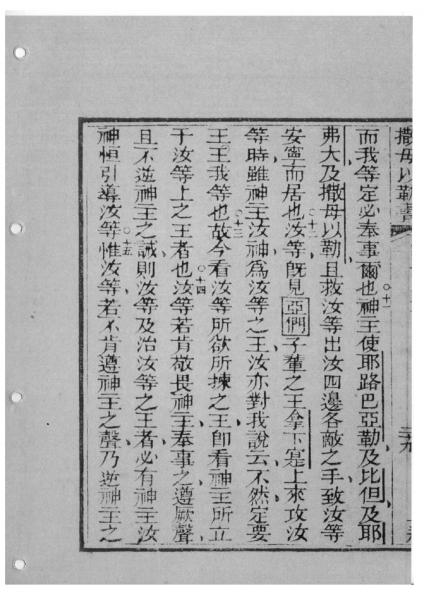 撒母以勒書
而我等定必奉事爾也○十一神王使耶路巴亞勒及比但及耶
弗大及撒母以勒且救汝等出汝四邊各敵之手致汝等
安寧而居也○十二汝等既見亞們子輩之王拿下寔上來攻汝
等時雖神王汝神為汝等之王汝亦對我說云不然定要
王王我等也○十三故今看汝等所欲所揀之王卽看神王所立
于汝等上之王者也○十四汝等若肯敬畏神王奉事之遵厥聲
且不逆神王之誡則汝等及治汝等之王者必有神主汝
神恒引導汝等○十五惟汝等若不肯遵神王之聲乃逆神王之